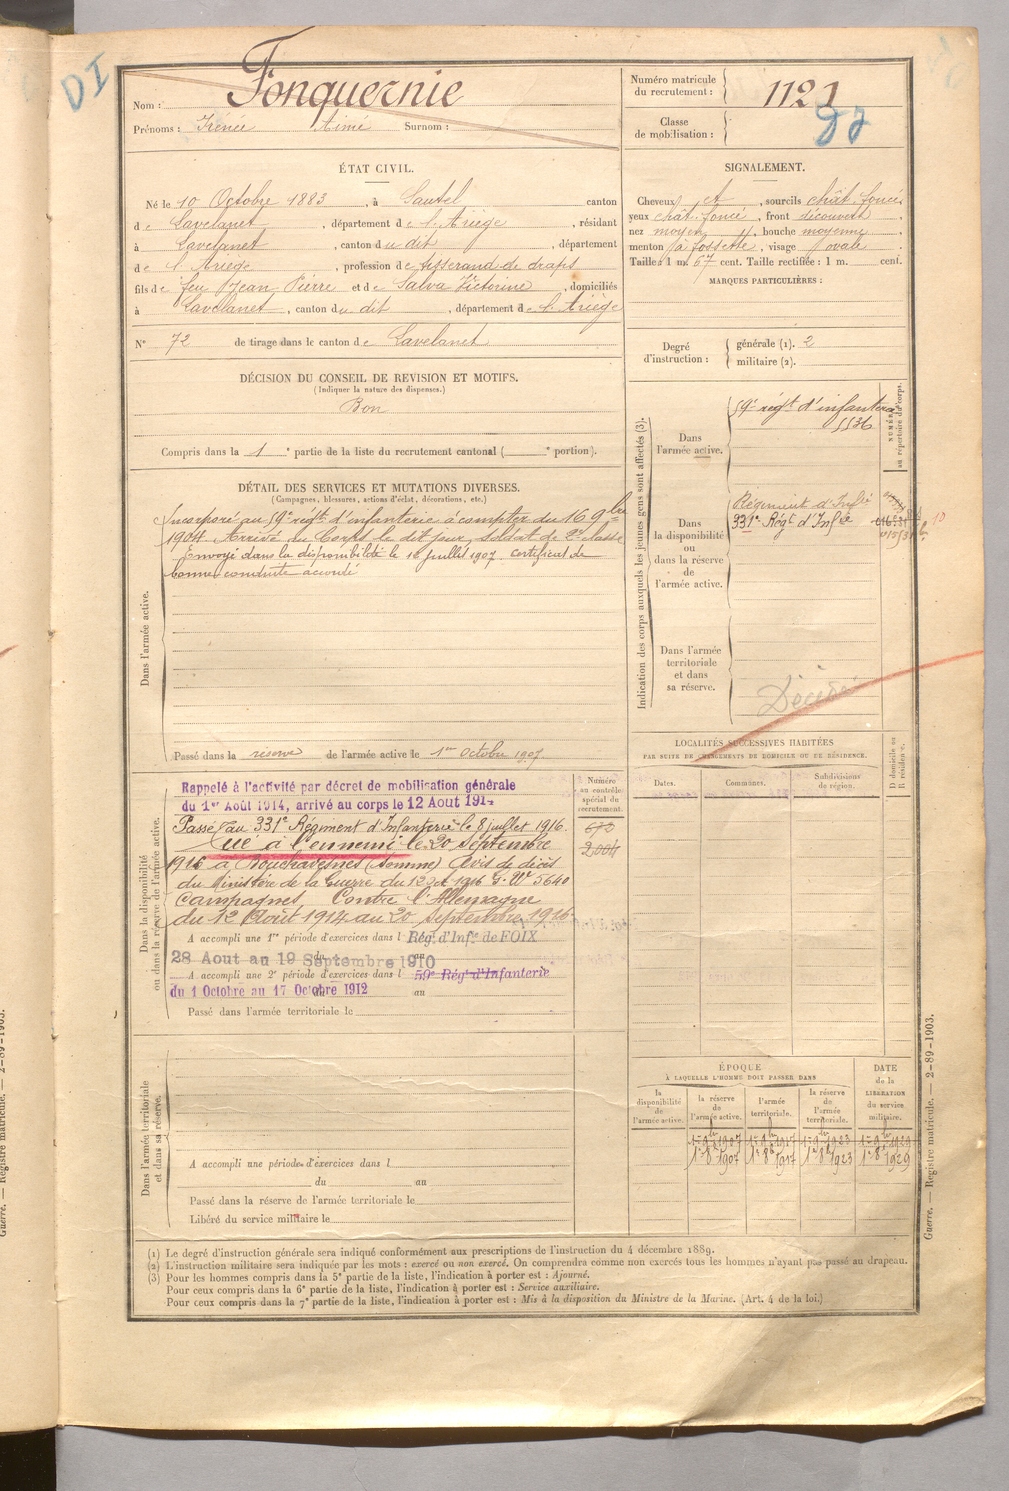 DI
Nom : Fonquernie
Prénoms : Irénée Aimé Surnom :
Numéro matricule du recrutement : 1121
Classe de mobilisation :
ÉTAT CIVIL.
Né le 10 Octobre 1883, à Sautel canton
de Lavelanet, département de l'Ariège, résidant
à Lavelanet, canton du dit, département
de l'Ariège, profession de tisserand de draps
fils de feu Jean Pierre et de Salva Victorine, domiciliés
à Lavelanet, canton du dit, département de l'Ariège
N° 72 de tirage dans le canton de Lavelanet
SIGNALEMENT.
Cheveux et, sourcils chât. foncé,
yeux chât. foncé, front découvert,
nez moyen, bouche moyenne,
menton à fossette, visage ovale.
Taille : 1 m. 67 cent. Taille rectifiée : 1 m. cent.
MARQUES PARTICULIÈRES :
Degré d'instruction : générale (1). 2
militaire (2).
DÉCISION DU CONSEIL DE REVISION ET MOTIFS.
(Indiquer la nature des dispenses.)
Bon
Compris dans la 1e partie de la liste du recrutement cantonal ( e portion).
DÉTAIL DES SERVICES ET MUTATIONS DIVERSES.
(Campagnes, blessures, actions d'éclat, décorations, etc.)
Dans l'armée active.
Incorporé au 59e régt d'infanterie à compter du 16 9bre
1904. Arrivé au Corps le dit jour, soldat de 2e classe
Envoyé dans la disponibilité le 12 juillet 1907 certificat de
bonne conduite accordé
Passé dans la réserve de l'armée active le 1er Octobre 1907.
Dans la disponibilité ou dans la réserve de l'armée active.
Rappelé à l'activité par décret de mobilisation générale
du 1er Août 1914, arrivé au corps le 12 Aout 1914
Passé au 331e Régiment d'Infanterie le 8 juillet 1916.
Tué à l'ennemi le 20 Septembre
1916 à Bouchavesnes (Somme) Avis de décès
du Ministère de la Guerre du 12 Oct 1916 G. W 5640
Campagnes Contre l'Allemagne
du 12 Août 1914 au 20 Septembre 1916
A accompli une 1re période d'exercices dans l Rég. d'Infie de FOIX
28 Aout au 19 Septembre 1910
A accompli une 2e période d'exercices dans l 59e Régt d'Infanterie
du 1 Octobre au 17 Octobre 1912 au
Passé dans l'armée territoriale le
Numéro au contrôle spécial du recrutement.
672
2004
Dans l'armée territoriale et dans sa réserve.
A accompli une période d'exercices dans l
du au
Passé dans la réserve de l'armée territoriale le
Libéré du service militaire le
Indication des corps auxquels les jeunes gens sont affectés (3).
NUMÉRO au répertoire du corps.
Dans l'armée active.
59e régt d'infanterie
5536
Dans la disponibilité ou dans la réserve de l'armée active.
Régiment d'Infie
331e Régt d'Infie
Dans l'armée territoriale et dans sa réserve.
Décédé
LOCALITÉS SUCCESSIVES HABITÉES
PAR SUITE DE CHANGEMENTS DE DOMICILE OU DE RÉSIDENCE.
Dates.
Communes.
Subdivisions de région.
D domicile ou R résidence.
ÉPOQUE
À LAQUELLE L'HOMME DOIT PASSER DANS
la disponibilité de l'armée active.
la réserve de l'armée active.
l'armée territoriale.
la réserve de l'armée territoriale.
DATE de la LIBÉRATION du service militaire.
1er 8bre 1907
1er 8bre 1917
1er 8bre 1923
1er 8bre 1929
(1) Le degré d'instruction générale sera indiqué conformément aux prescriptions de l'instruction du 4 décembre 1889.
(2) L'instruction militaire sera indiquée par les mots : exercé ou non exercé. On comprendra comme non exercés tous les hommes n'ayant pas passé au drapeau.
(3) Pour les hommes compris dans la 5e partie de la liste, l'indication à porter est : Ajourné.
Pour ceux compris dans la 6e partie de la liste, l'indication à porter est : Service auxiliaire.
Pour ceux compris dans la 7e partie de la liste, l'indication à porter est : Mis à la disposition du Ministre de la Marine. (Art. 4 de la loi.)
Guerre. — Registre matricule. — 2-89-1903.
Guerre. — Registre matricule. — 2-89-1903.